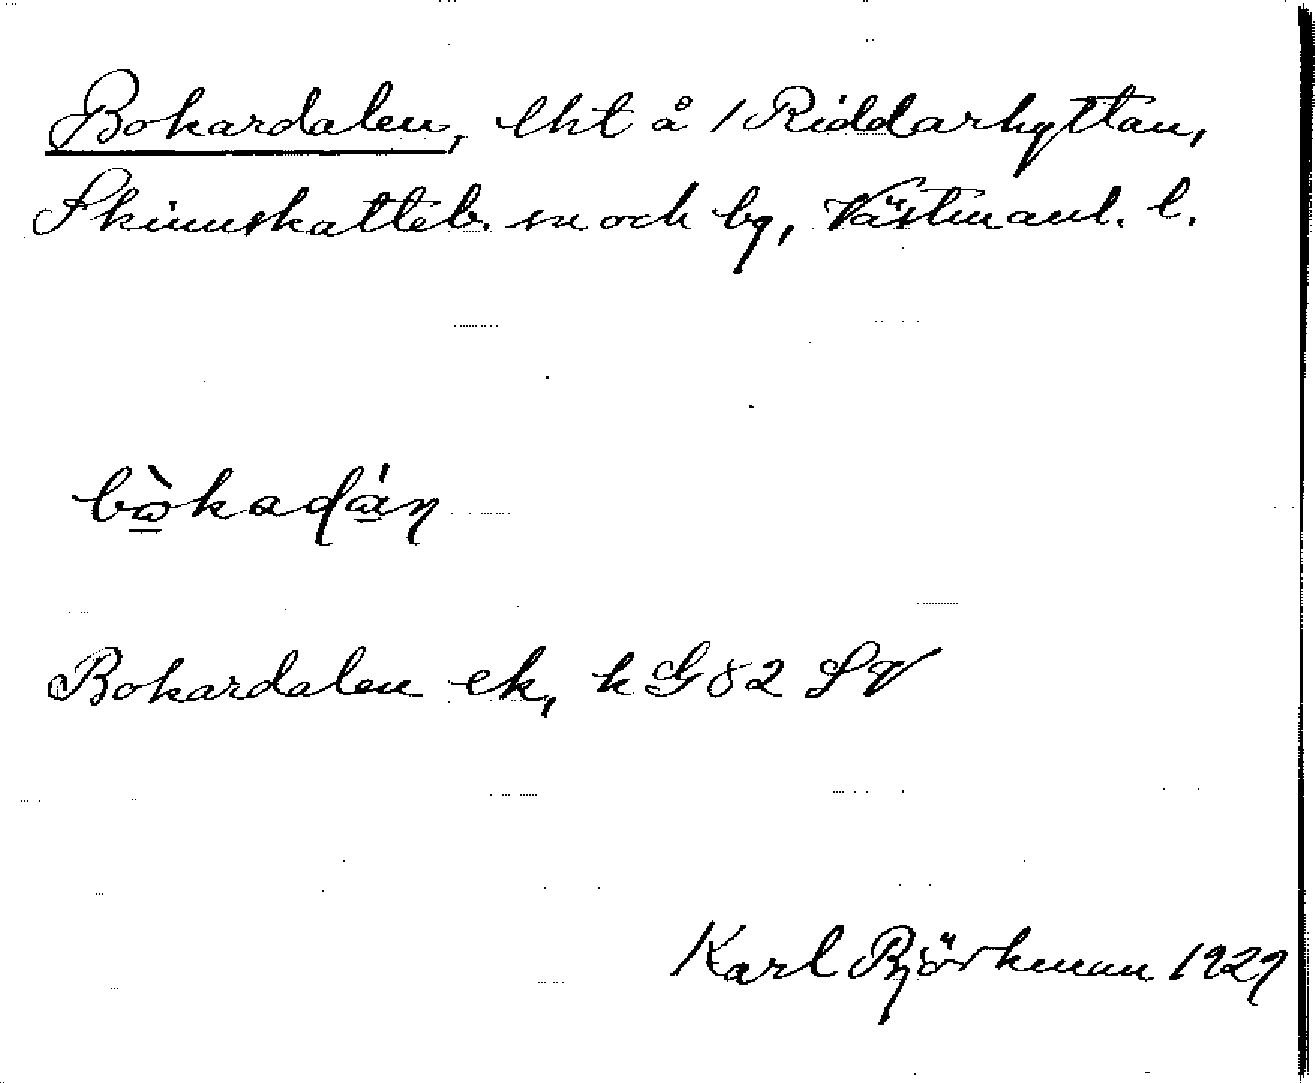 Bokardalen, lht å 1 Riddarhyttan,
Skinnskatteb. sn och bg, Västmanl. l.
bò̱kadá̱n
Bokardalen ek, k G 82 SV
Karl Björkman 1929